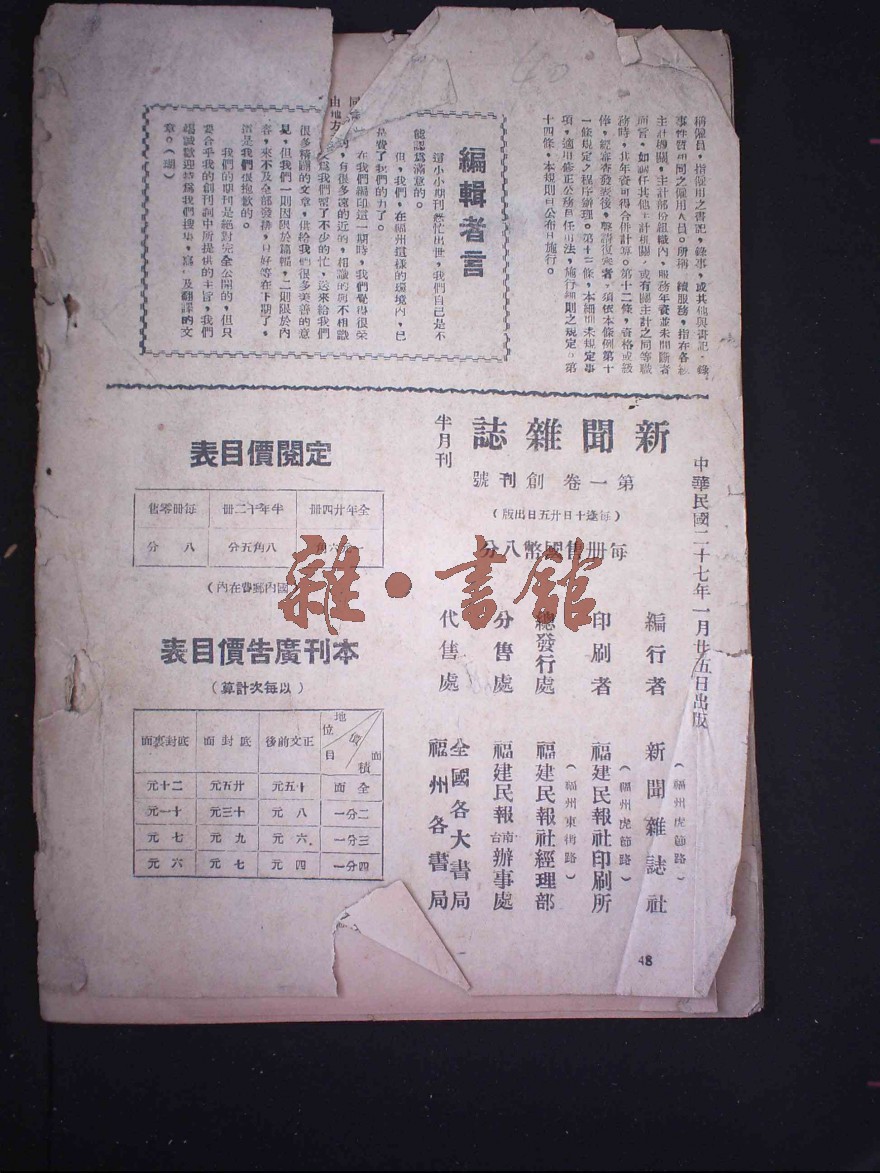 稱僱員，指僱用之書記，錄事，或其他與書記，錄
事性質相同之僱用人員。所稱
主計機關，主計部份組織內，服務年資並未間斷者
而言，如調任其他主計機關，或有關主計之同等職
務時，其年資可得合併計算。第十二條，資格或級
停，經審查發表後，聲請復
一條規定之程序辦理。第十三條，本細則未規定事
項，適用修正公務員任用法，施行細則之規定。第
十四條，本規則自公布日施行。
編輯者言
這小小期刊
能認爲滿意的。
但，我們，在福州這樣的環境內，已
是費了我們的力了。
在我們編印這一期時，我們覺得很榮
有很多遠的近的，相識的與不相識
爲我們幫了不少的忙，送來給我們
很多精闢的文章，供給我們很多美善的意
見，但我們一則因限於篇幅，二則限於內
容，來不及全部發排，只好等在下期了，
這是我們很抱歉的。
我們的期刊是絕對完全公開的，但只
要合乎我的創刊詞中所提供的主旨，我們
竭誠歡迎
章。（珊）
中華民國二十七年一月廿五日出版
新聞雜誌
半月刊
第一卷 創刊號
（每逢十日廿五日出版）
每册售國幣八分
編行者 新聞雜誌社
（福州虎節路）
印刷者 福建民報社印刷所
（福州虎節路）
總發行處 福建民報社經理部
（福州東街路）
分售處 福建民報南台辦事處
代售處 全國各大書局
福州各書局
定閱價目表
全年廿四册 半年十二册 每册零售
八角五分 八分
（國內郵費在內）
本刊廣告價目表
（以每次計算）
面積 價目 地位 正文前後 底封面 底封裏面
全面 十五元 廿五元 二十元
二分一 八元 十三元 十一元
三分一 六元 九元 七元
四分一 四元 七元 六元
48
雜·書館